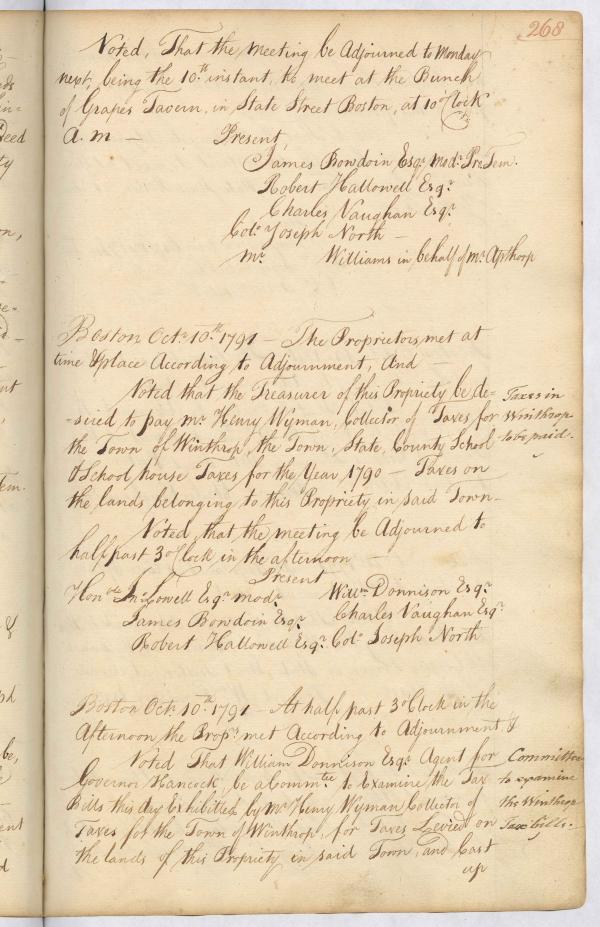 268
Voted, That the meeting be Adjourned to Monday
next, being the 10.th instant, to meet at the Bunch
of Grapes Tavern, in State Street Boston, at 10 oClock
A. m —
Present,
James Bowdoin Esqr. modr. Pro Tem.
Robert Hallowell Esqr.
Charles Vaughan Esqr.
Colo. Joseph North —
mr. Williams in behalf of mr. Apthorp
Boston Octr. 10th. 1791 — The Proprietors met at
time & place According to Adjournment, And —
Voted that the Treasurer of this Propriety be de=
=sired to pay mr. Henry Wyman, Collector of Taxes for
the Town of Winthrop, the Town, State, County School
& School house Taxes for the Year 1790 — Taxes on
the lands belonging to this Propriety in said Town —
Taxes in
Winthrop
to be paid.
Voted, that the meeting be Adjourned to
half past 3 oClock in the afternoon —
Present
Honble Jn. Lowell Esqr. modr.
James Bowdoin Esqr.
Robert Hallowell Esqr.
Willm. Donnison Esqr.
Charles Vaughan Esqr.
Colo. Joseph North
Boston Octr. 10th. 1791 — At half past 3 oClock in the
Afternoon the Proprs. met According to Adjournment, &
Voted That William Donnison Esqr. Agent for
Governor Hancock, be a Committee to Examine the Tax
Bills this day Exhibited by mr. Henry Wyman Collector of
Taxes for the Town of Winthrop, for Taxes Levied on
the lands of this Propriety in said Town, and Cast
up
Committee
to examine
the Winthrop
Tax bills.